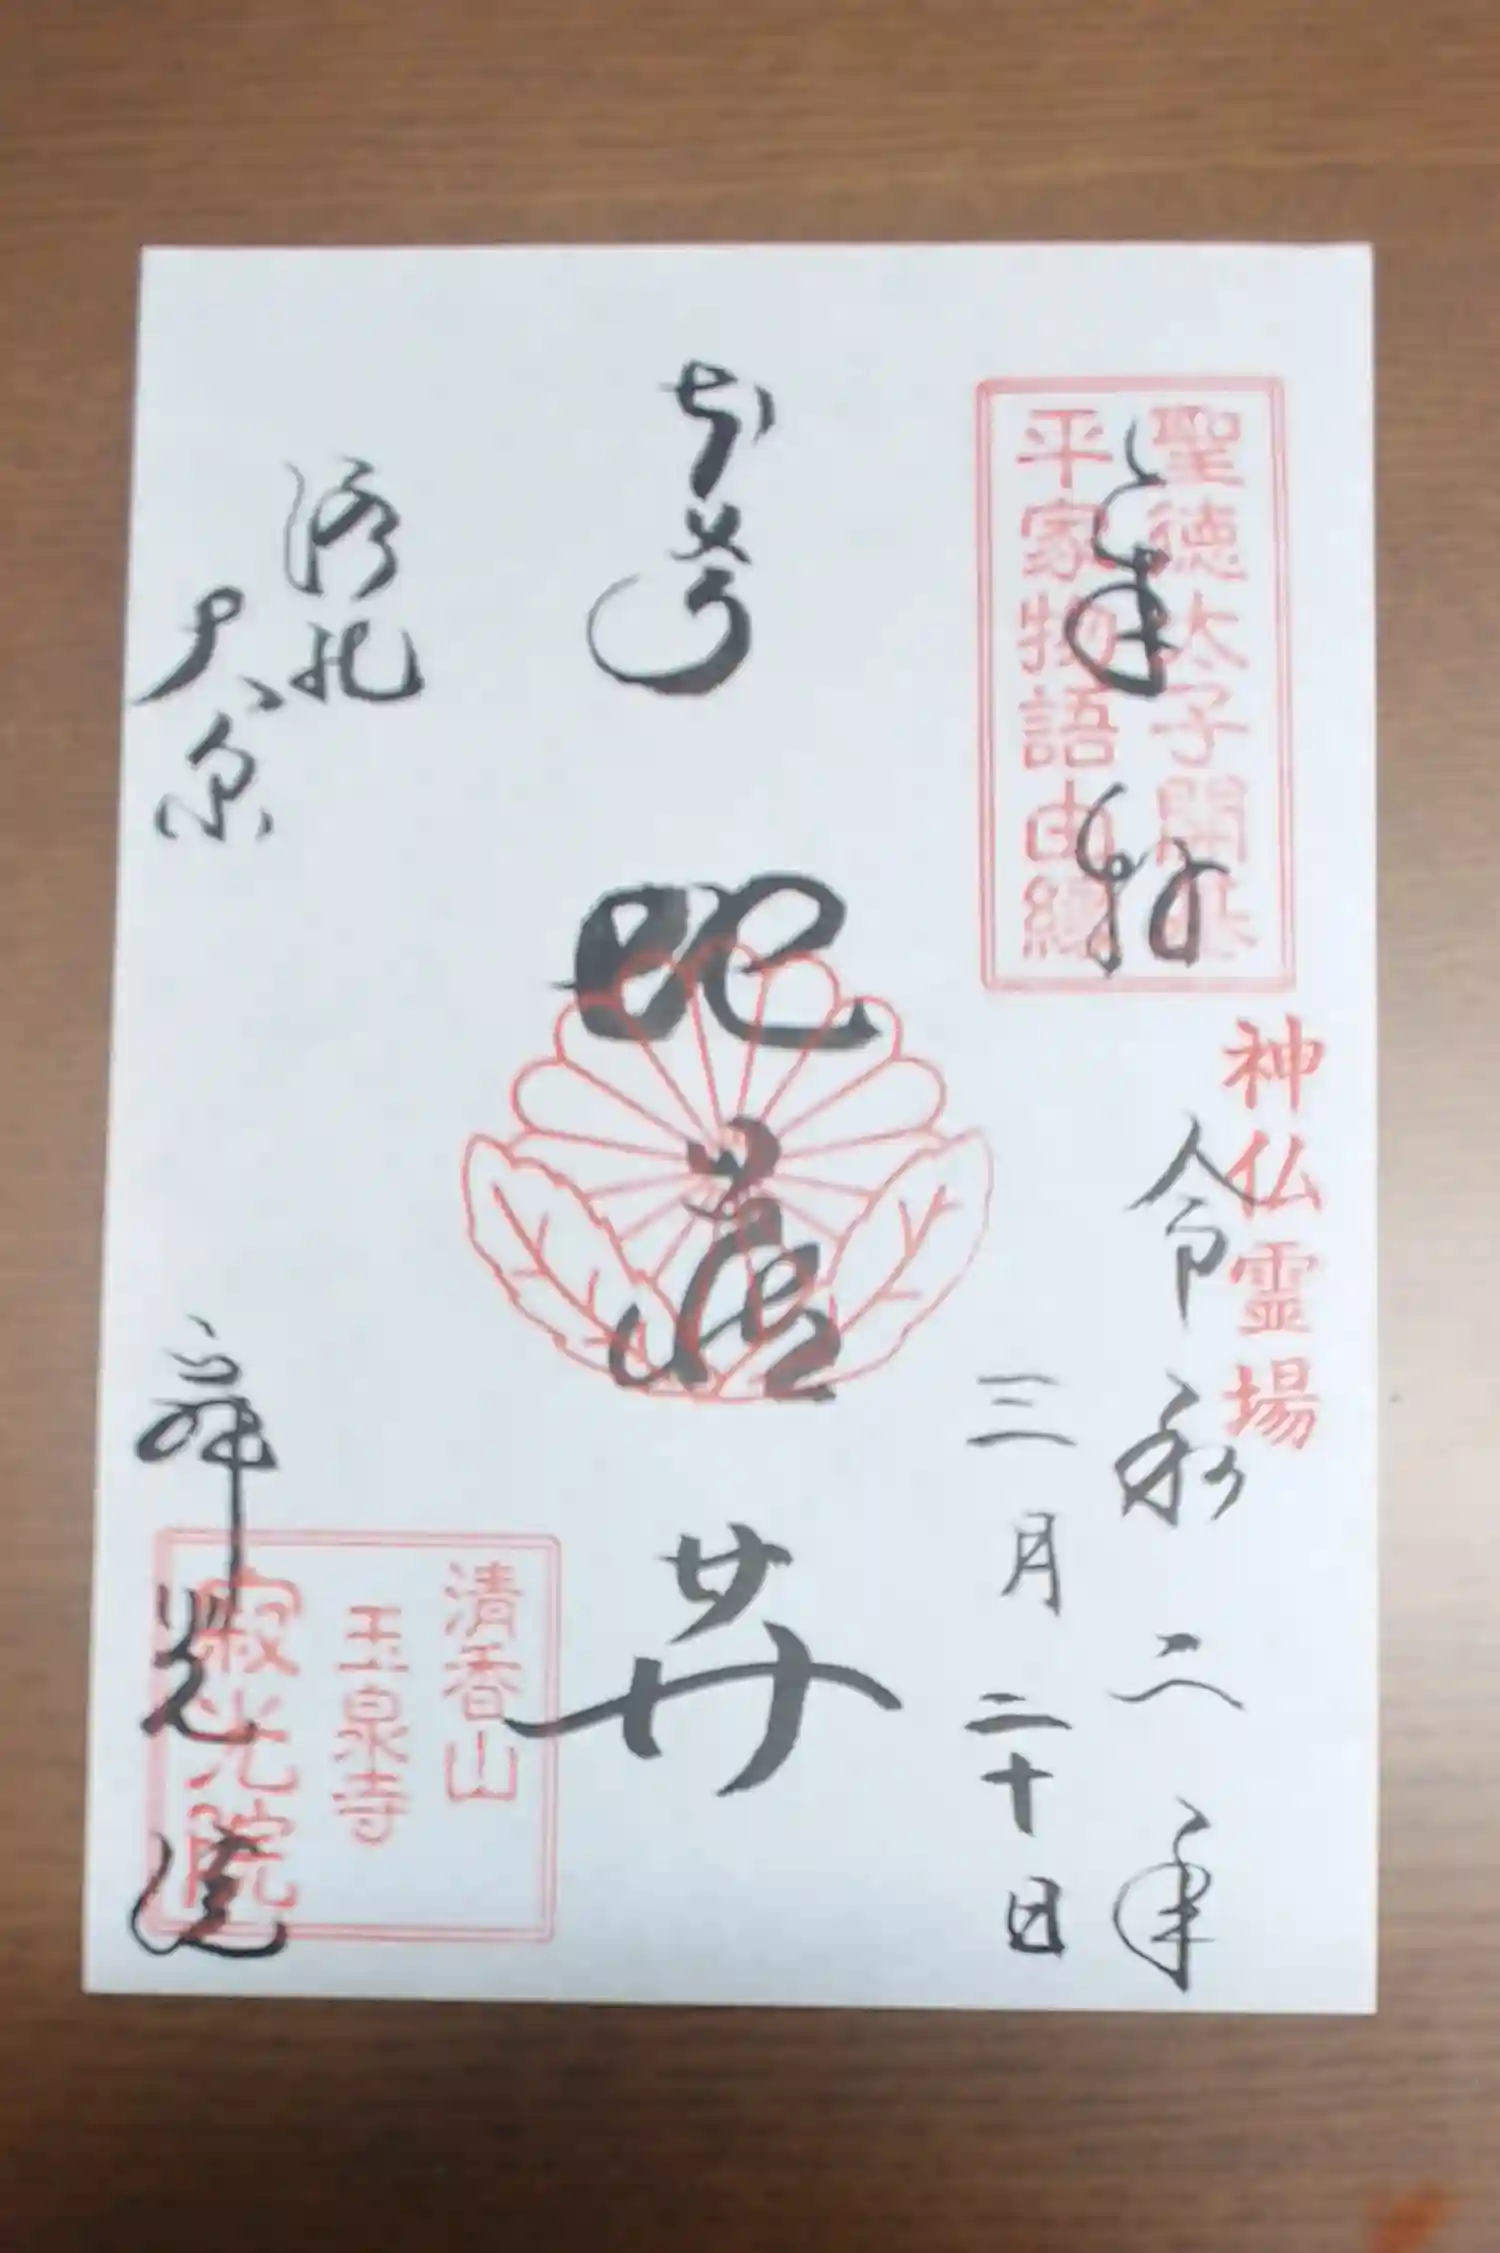 奉拝
聖徳太子開基
平家物語由縁
神仏霊場
令和二年
三月二十日
本尊
地蔵井
洛北
大原
寂光院
清香山
玉泉寺
寂光院